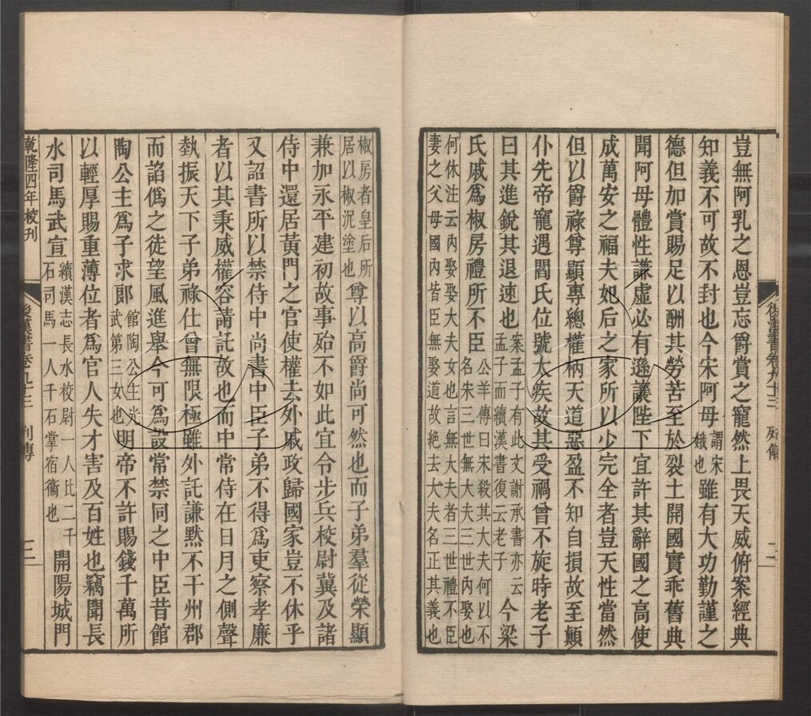 後漢書卷九十三 列傳 二
豈無阿乳之恩豈忘爵賞之寵然上畏天威俯案經典
知義不可故不封也今宋阿母謂宋娥也雖有大功勤謹之
德但加賞賜足以酬其勞苦至於裂土開國實乖舊典
聞阿母體性謙虛必有遜讓陛下宜許其辭國之高使
成萬安之福夫妃后之家所以少完全者豈天性當然
但以爵祿尊顯專總權柄天道惡盈不知自損故至顛
仆先帝寵遇閻氏位號太疾故其受禍曾不旋時老子
曰其進銳其退速也案孟子有此文謝承書亦云孟子而續漢書復云老子今梁
氏戚爲椒房禮所不臣公羊傳曰宋殺其大夫何以不名宋三世無大夫三世內娶也
何休注云內娶娶大夫女也言無大夫者三世禮不臣
妻之父母國內皆臣無娶道故絶去大夫名正其義也
椒房者皇后所居以椒泥塗也尊以高爵尚可然也而子弟羣從榮顯
兼加永平建初故事殆不如此宜令步兵校尉冀及諸
侍中還居黃門之官使權去外戚政歸國家豈不休乎
又詔書所以禁侍中尚書中臣子弟不得爲吏察孝廉
者以其秉威權容請託故也而中常侍在日月之側聲
埶振天下子弟祿仕曾無限極雖外託謙默不干州郡
而諂僞之徒望風進舉今可爲設常禁同之中臣昔館
陶公主爲子求郞館陶公主光武第三女也明帝不許賜錢千萬所
以輕厚賜重薄位者爲官人失才害及百姓也竊聞長
水司馬武宣續漢志長水校尉一人比二千石司馬一人千石掌宿衞也開陽城門
乾隆四年校刊 後漢書卷九十三 列傳 三